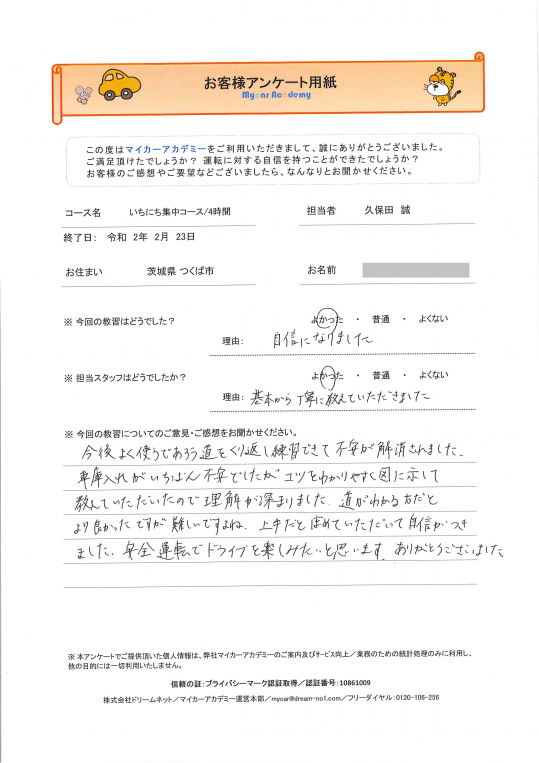 お客様アンケート用紙
Mycar Academy
この度はマイカーアカデミーをご利用いただきまして、誠にありがとうございました。
ご満足頂けたでしょうか？ 運転に対する自信を持つことができたでしょうか？
お客様のご感想やご要望などございましたら、なんなりとお聞かせください。
コース名 いちにち集中コース/4時間 担当者 久保田 誠
終了日： 令和 2年 2月 23日
お住まい 茨城県 つくば市 お名前
※ 今回の教習はどうでした？ よかった ・ 普通 ・ よくない
理由： 自信になりました
※ 担当スタッフはどうでしたか？ よかった ・ 普通 ・ よくない
理由： 基本から丁寧に教えていただきました
※ 今回の教習についてのご意見・ご感想をお聞かせください。
今後よく使うであろう道をくり返し練習できて不安が解消されました。
車庫入れがいちばん不安でしたがコツをわかりやすく図に示して
教えていただいたので理解が深まりました。道がわかる方だと
より良かったですが難しいですよね。上手だと褒めていただいて自信がつき
ました。安全運転でドライブを楽しみたいと思います。ありがとうございました
※ 本アンケートでご提供頂いた個人情報は、弊社マイカーアカデミーのご案内及びサービス向上／業務のための統計処理のみに利用し、
他の目的には一切利用いたしません。
信頼の証：プライバシーマーク認証取得／認証番号：10861009
株式会社ドリームネット／マイカーアカデミー運営本部／mycar@dream-no1.com／フリーダイヤル：0120-106-256